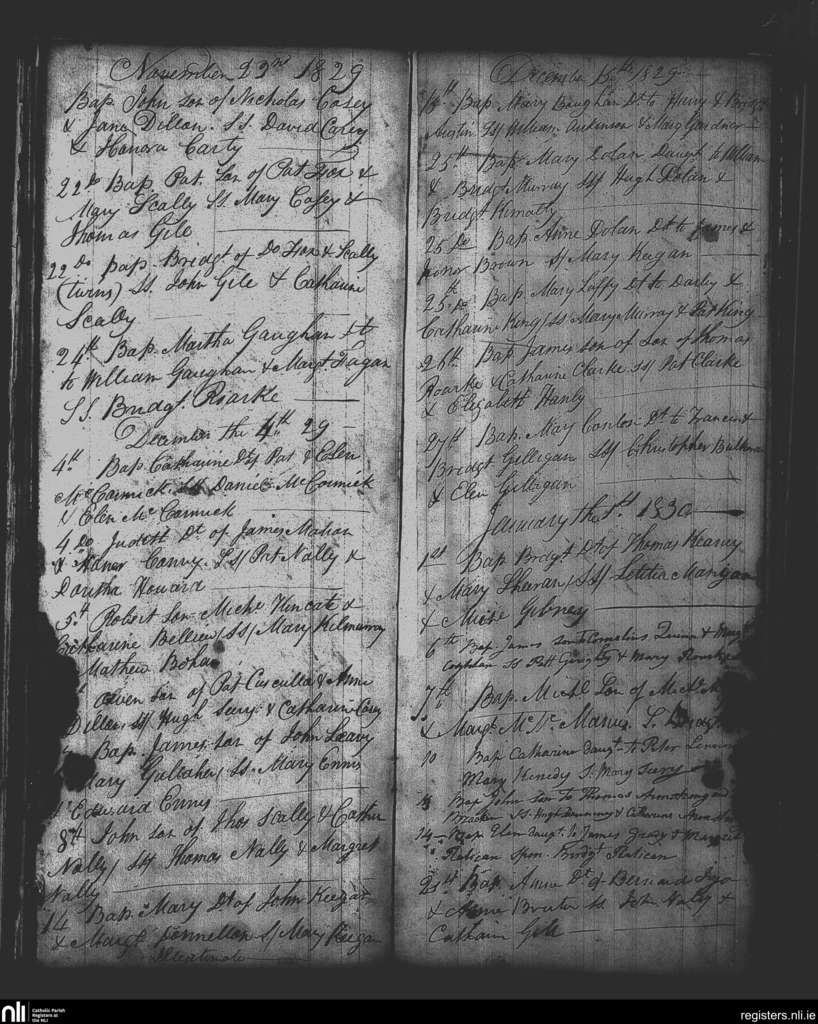 November 22nd 1829
Bap. John son of Nicholas Casey
& Jane Dillon. SS. David Carey
& Honora Carty
22d Bap. Pat. Son of Pat Fox &
Mary Scally SS. Mary Casey &
Thomas Gile
22 Do Bap. Bridgt of Do Fox & Scally
(twins) SS. John Gile & Catharine
Scally
24th Bap. Martha Gaughan Dt to
to William Gaughan & Margt Fagan
SS. Bridgt. Roarke
December the 4th 29
4th Bap. Catharine Dt of Pat & Elen
McCormick SS/ Daniel McCormick
& Elen McCormick
4 Do Judith Dt of James Mahon
& Honor Conry. SS/ Pat Nally &
Doritha Howard
5th Robert Son Michl Kincate &
Catharine Bellew/ SS/ Mary Kilmurray
Mathew Bohan
Owen Son of Pat Cusculla & Anne
Dillon SS/ Hugh & Catharine Casey
Bap. James Son of John Leavy
Mary Gallaher/ SS. Mary Ennis
Edward Ennis
8th John Son of Thos Scally & Cathn
Nally/ SS/ Thomas Nally & Margret
Nally
14 Bap. Mary Dt of John Keegan
& Margt Fennellon S/ Mary Keegan
Illegitimate
December 15th 1829
Bap. Mary Dt to Henry & Bridgt
Austin SS/ William Aickinson & Mary Gardner
25th Bap. Mary Dolan Daugt to William
& Bridgt Murray SS/ Hugh Dolan &
Bridgt
25 Do Bap. Anne Dolan Dt to James &
Honor Brown S/ Mary Keegan
25th Do Bap. Mary Laffy Dt to Darby &
Catharine King/ SS Mary Murray & Pat King
26th Bap. James Son of Son of Thomas
Roarke & Catharine Clarke SS/ Pat Clarke
& Elizabeth Hanly
27th Bap. Mary Dt to Francis &
Bridgt Gilligan SS/ Christopher
& Elen Gilligan
January the 1st 1830
1st Bap. Bridgt. Dt of Thomas Kearney
& Mary SS/ Letitia Mangan
& Gibney
6th Bap James Son to Cornelius Quinn & Margt
Coghlan SS Patt & Mary Rourke
7th Bap. Michl Son of
& Margt S.
10 Bap Catharine daugt. to Peter
Mary Kenedy S. Mary
Bap John Son to Thomas Armstrong and
SS. Hugh & Catherine
14 Bap. Elen daugt. to James Grady & Margret
Flatican Spon. Bridgt Flatican
21st Bap. Anne Dt of Bernard
& Anne SS John Nally &
Catharin Gile
nli
Catholic Parish
Registers at
the NLI
registers.nli.ie